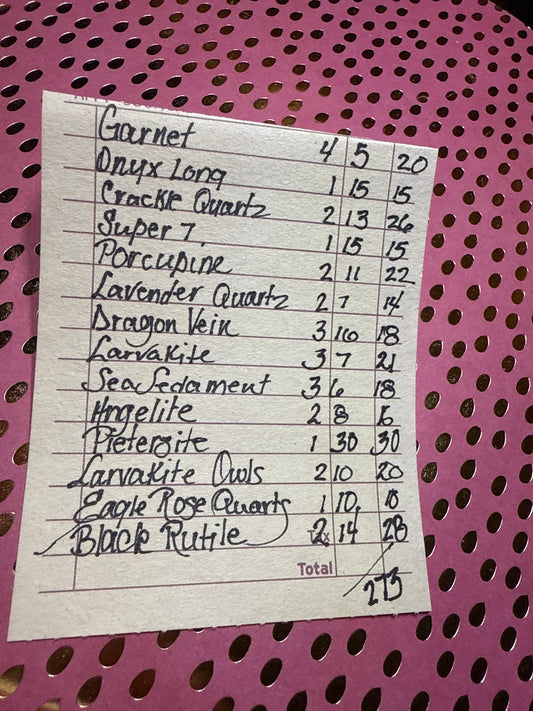 Garnet 4 5 20
Onyx Long 1 15 15
Crackle Quartz 2 13 26
Super 7 1 15 15
Porcupine 2 11 22
Lavender Quartz 2 7 14
Dragon Vein 3 16 18
Larvakite 3 7 21
Sea Sedament 3 6 18
Angelite 2 8 16
Pietersite 1 30 30
Larvakite Owls 2 10 20
Eagle Rose Quarts 1 10 10
Black Rutile 2 14 28
Total
273